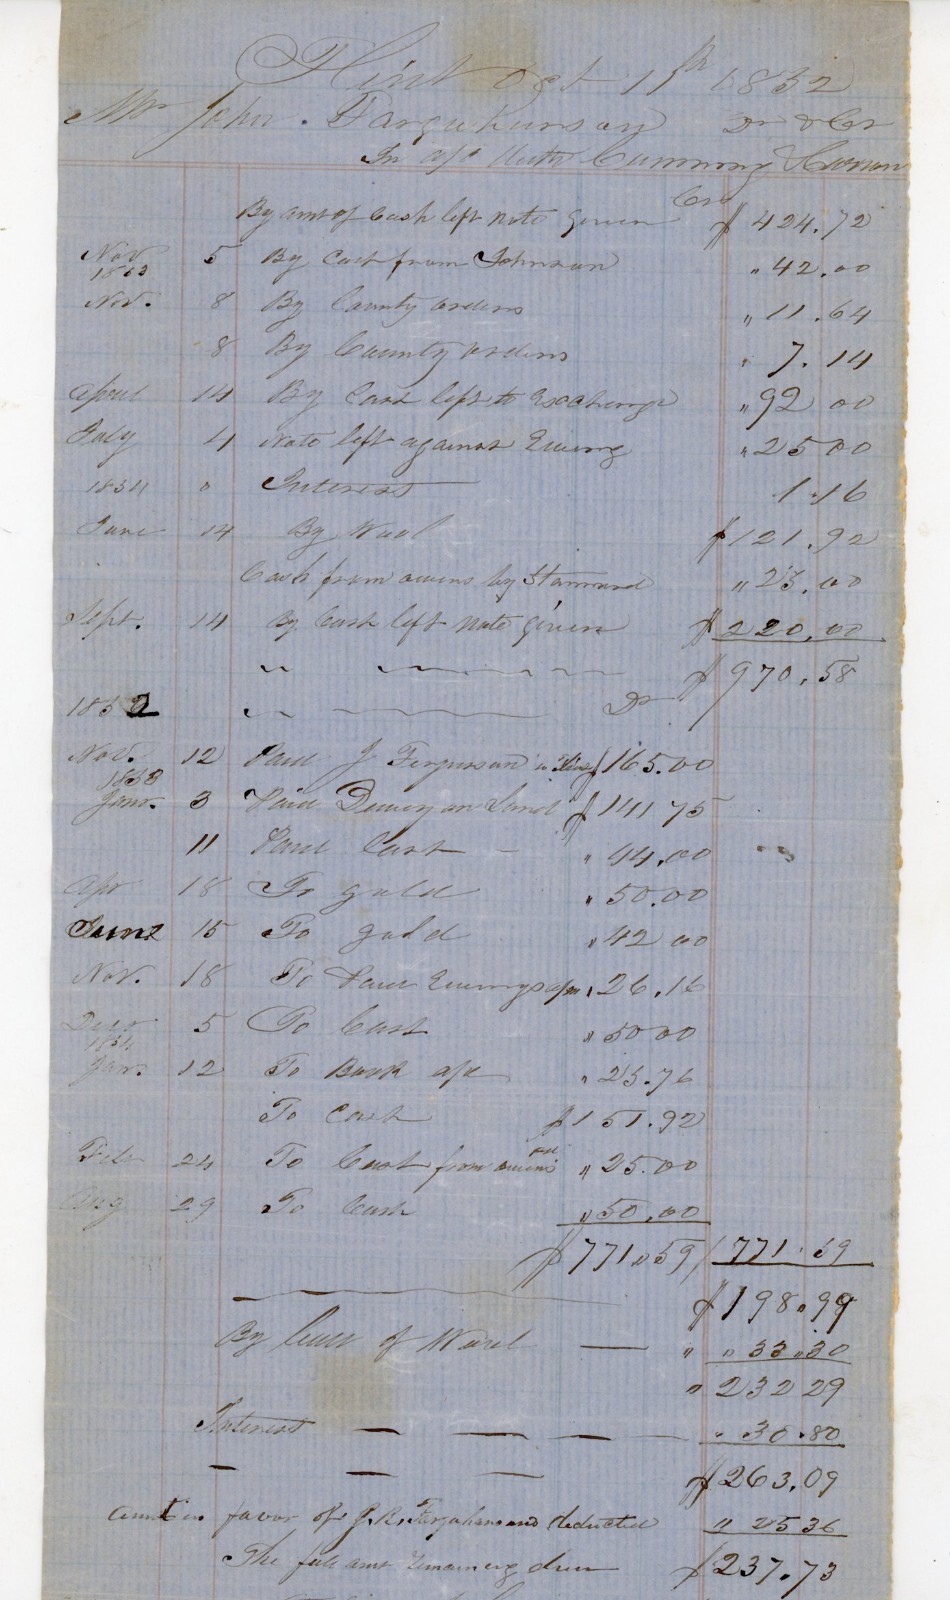 Flint Oct 11th 1852
Mr John. Farquharson Dr & Cr
In a/c with Cummings
Cr
By amt of Cash left note given $ 424.72
Nov 5 By Cash from Johnson " 42.00
1853
Nov. 8 By County orders " 11.64
8 By County orders " 7.14
April 14 By Cash left to Exchange " 92 00
July 4 Note left against Ewing " 25 00
1854 " Interest 1.16
June 14 By Wool $ 121.92
Cash from owens by Stannard " 25.00
Sept. 14 By Cash left Note Given $ 220.00
" $ 970.58
1852 " Dr
Nov. 12 Paid J Ferguson $ 165.00
1853
Janr. 3 Paid Dewey on Land $ 141 75
11 Paid Cash - " 44.00
Apr 18 To gold " 50.00
June 15 To gold " 42 00
Nov. 18 To Paid Ewings a/c " 26.16
Decr 5 To Cash " 50 00
1854
Jan. 12 To Book a/c " 25.76
To Cash $ 151.92
Feb 24 To Cash from owens " 25.00
Aug 29 To Cash " 50.00
$ 771.59 / 771.59
$ 198.99
By Cash of Wool — " " 33.30
" 232 29
Interest — — — — " 30.80
— — — $ 263.09
amt in favor of J. R. Farquharson deducted " 25 36
The full amt remaining due $ 237.73